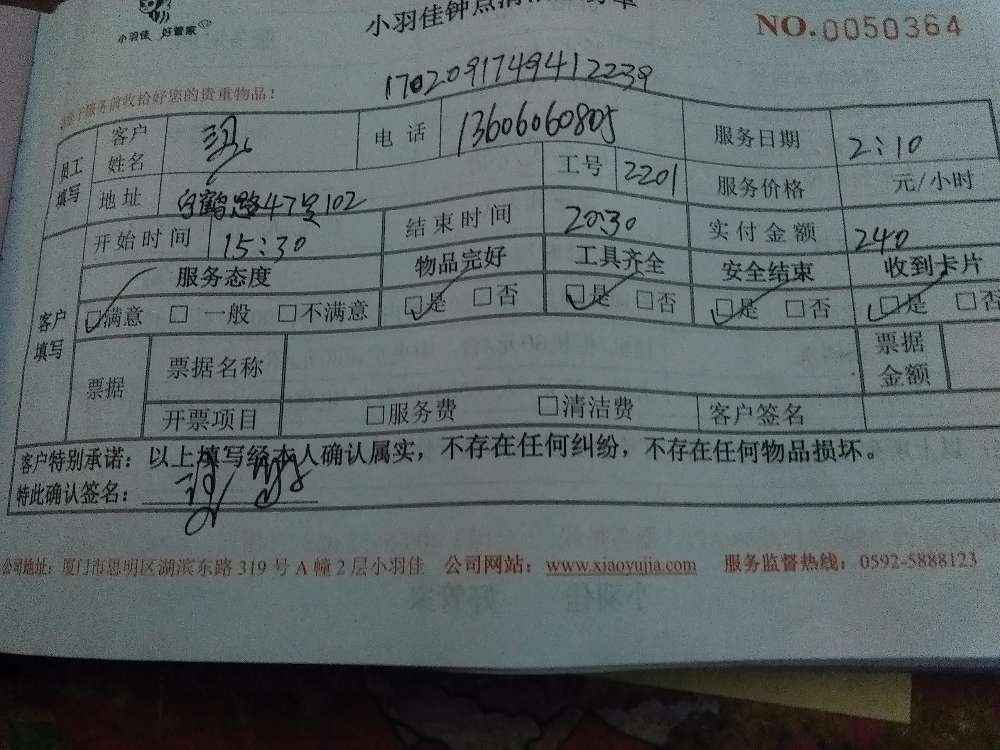 小羽佳 好管家
小羽佳钟点清
NO.0050364
1702091749412239
服务前收拾好您的贵重物品!
员工填写 客户姓名 电话 13606060805 服务日期 2:10
地址 白鹤路47号102 工号 2201 服务价格 元/小时
客户填写 开始时间 15:30 结束时间 20:30 实付金额 240
服务态度 物品完好 工具齐全 安全结束 收到卡片
☑满意 □一般 □不满意 ☑是 □否 ☑是 □否 ☑是 □否 ☑是 □否
票据 票据名称 票据金额
开票项目 □服务费 □清洁费 客户签名
客户特别承诺:以上填写经本人确认属实,不存在任何纠纷,不存在任何物品损坏。
特此确认签名:
公司地址:厦门市思明区湖滨东路 319 号 A 幢 2 层小羽佳 公司网站:www.xiaoyujia.com 服务监督热线:0592-5888123